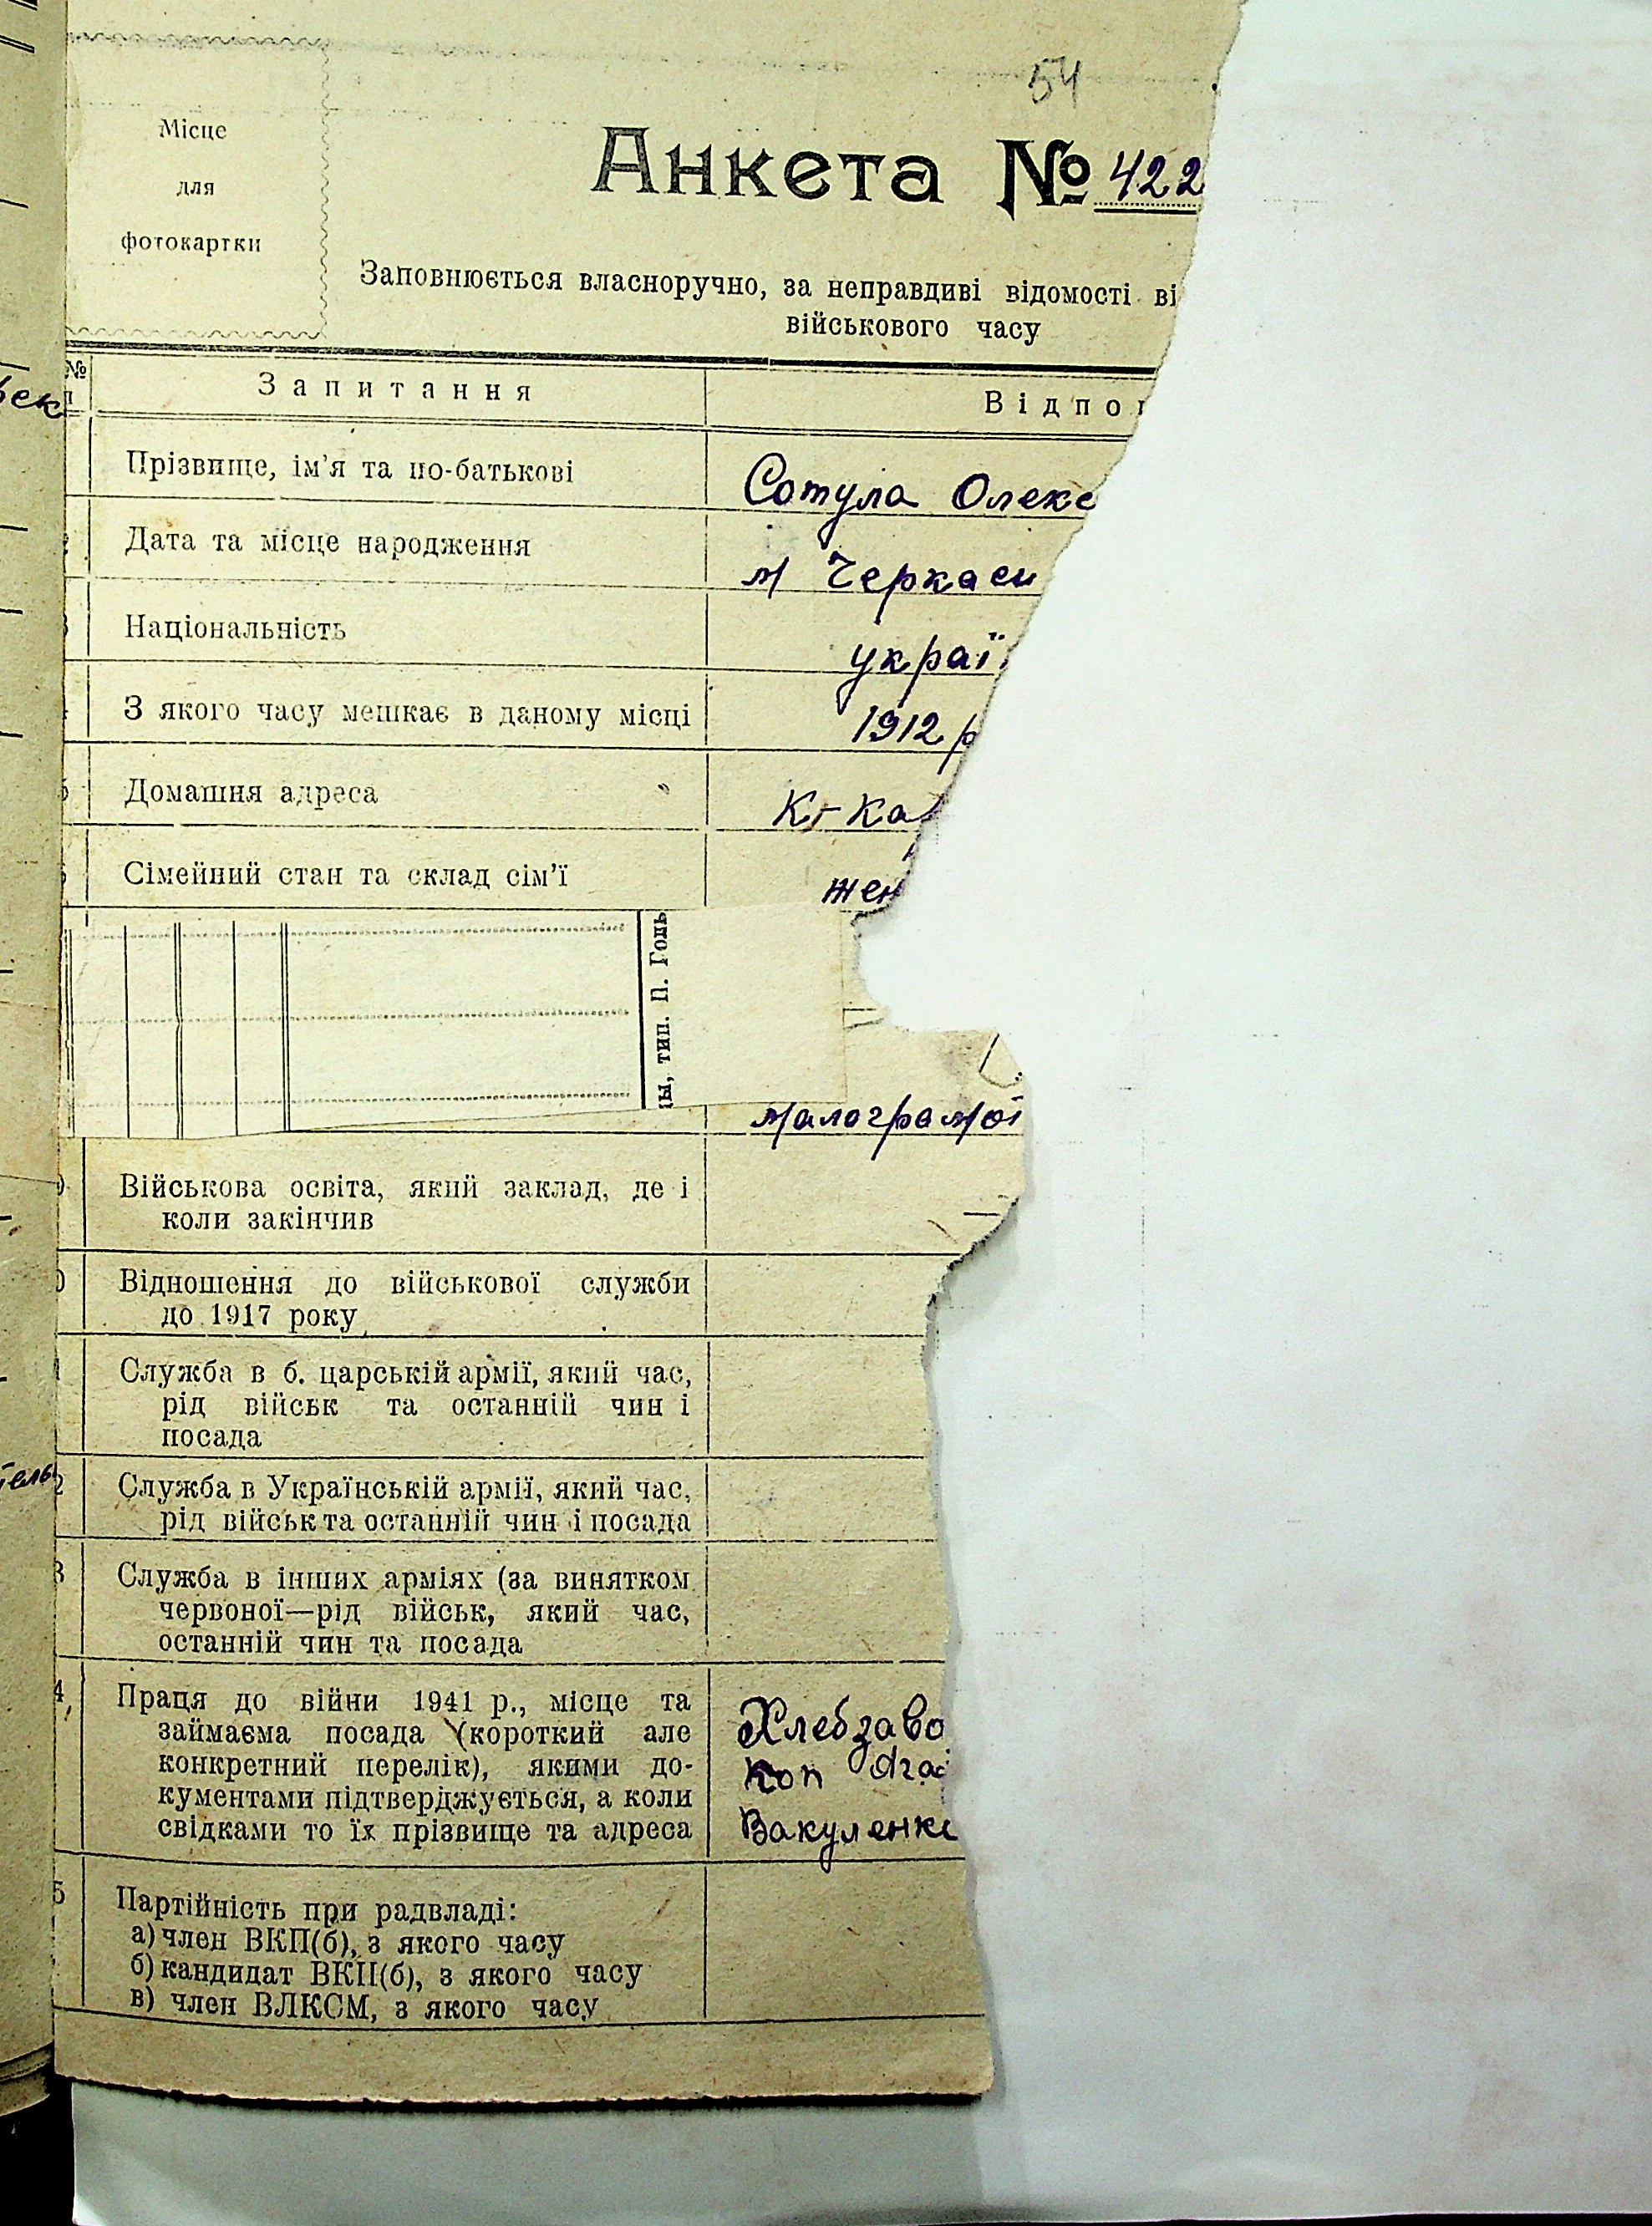 54
Місце
для
фотокартки
Анкета № 422
Заповнюється власноручно, за неправдиві відомості ві
військового часу
№
п
Запитання
Відпо
Прізвище, ім'я та по-батькові
Сотула Олекс
Дата та місце народження
м Черкаси
Національність
украї
З якого часу мешкає в даному місці
1912 р
Домашня адреса
Сімейний стан та склад сім'ї
жен
ы, тип. П. Голь
малограмої
Військова освіта, який заклад, де і
коли закінчив
Відношення до військової служби
до 1917 року
Служба в б. царській армії, який час,
рід військ та останній чин і
посада
2
Служба в Українській армії, який час,
рід військ та останній чин і посада
3
Служба в інших арміях (за винятком
червоної—рід військ, який час,
останній чин та посада
4
Праця до війни 1941 р., місце та
займаєма посада (короткий але
конкретний перелік), якими до-
кументами підтверджується, а коли
свідками то їх прізвище та адреса
Хлебзаво
Коп
Вакуленко
5
Партійність при радвладі:
а) член ВКП(б), з якого часу
б) кандидат ВКП(б), з якого часу
в) член ВЛКСМ, з якого часу